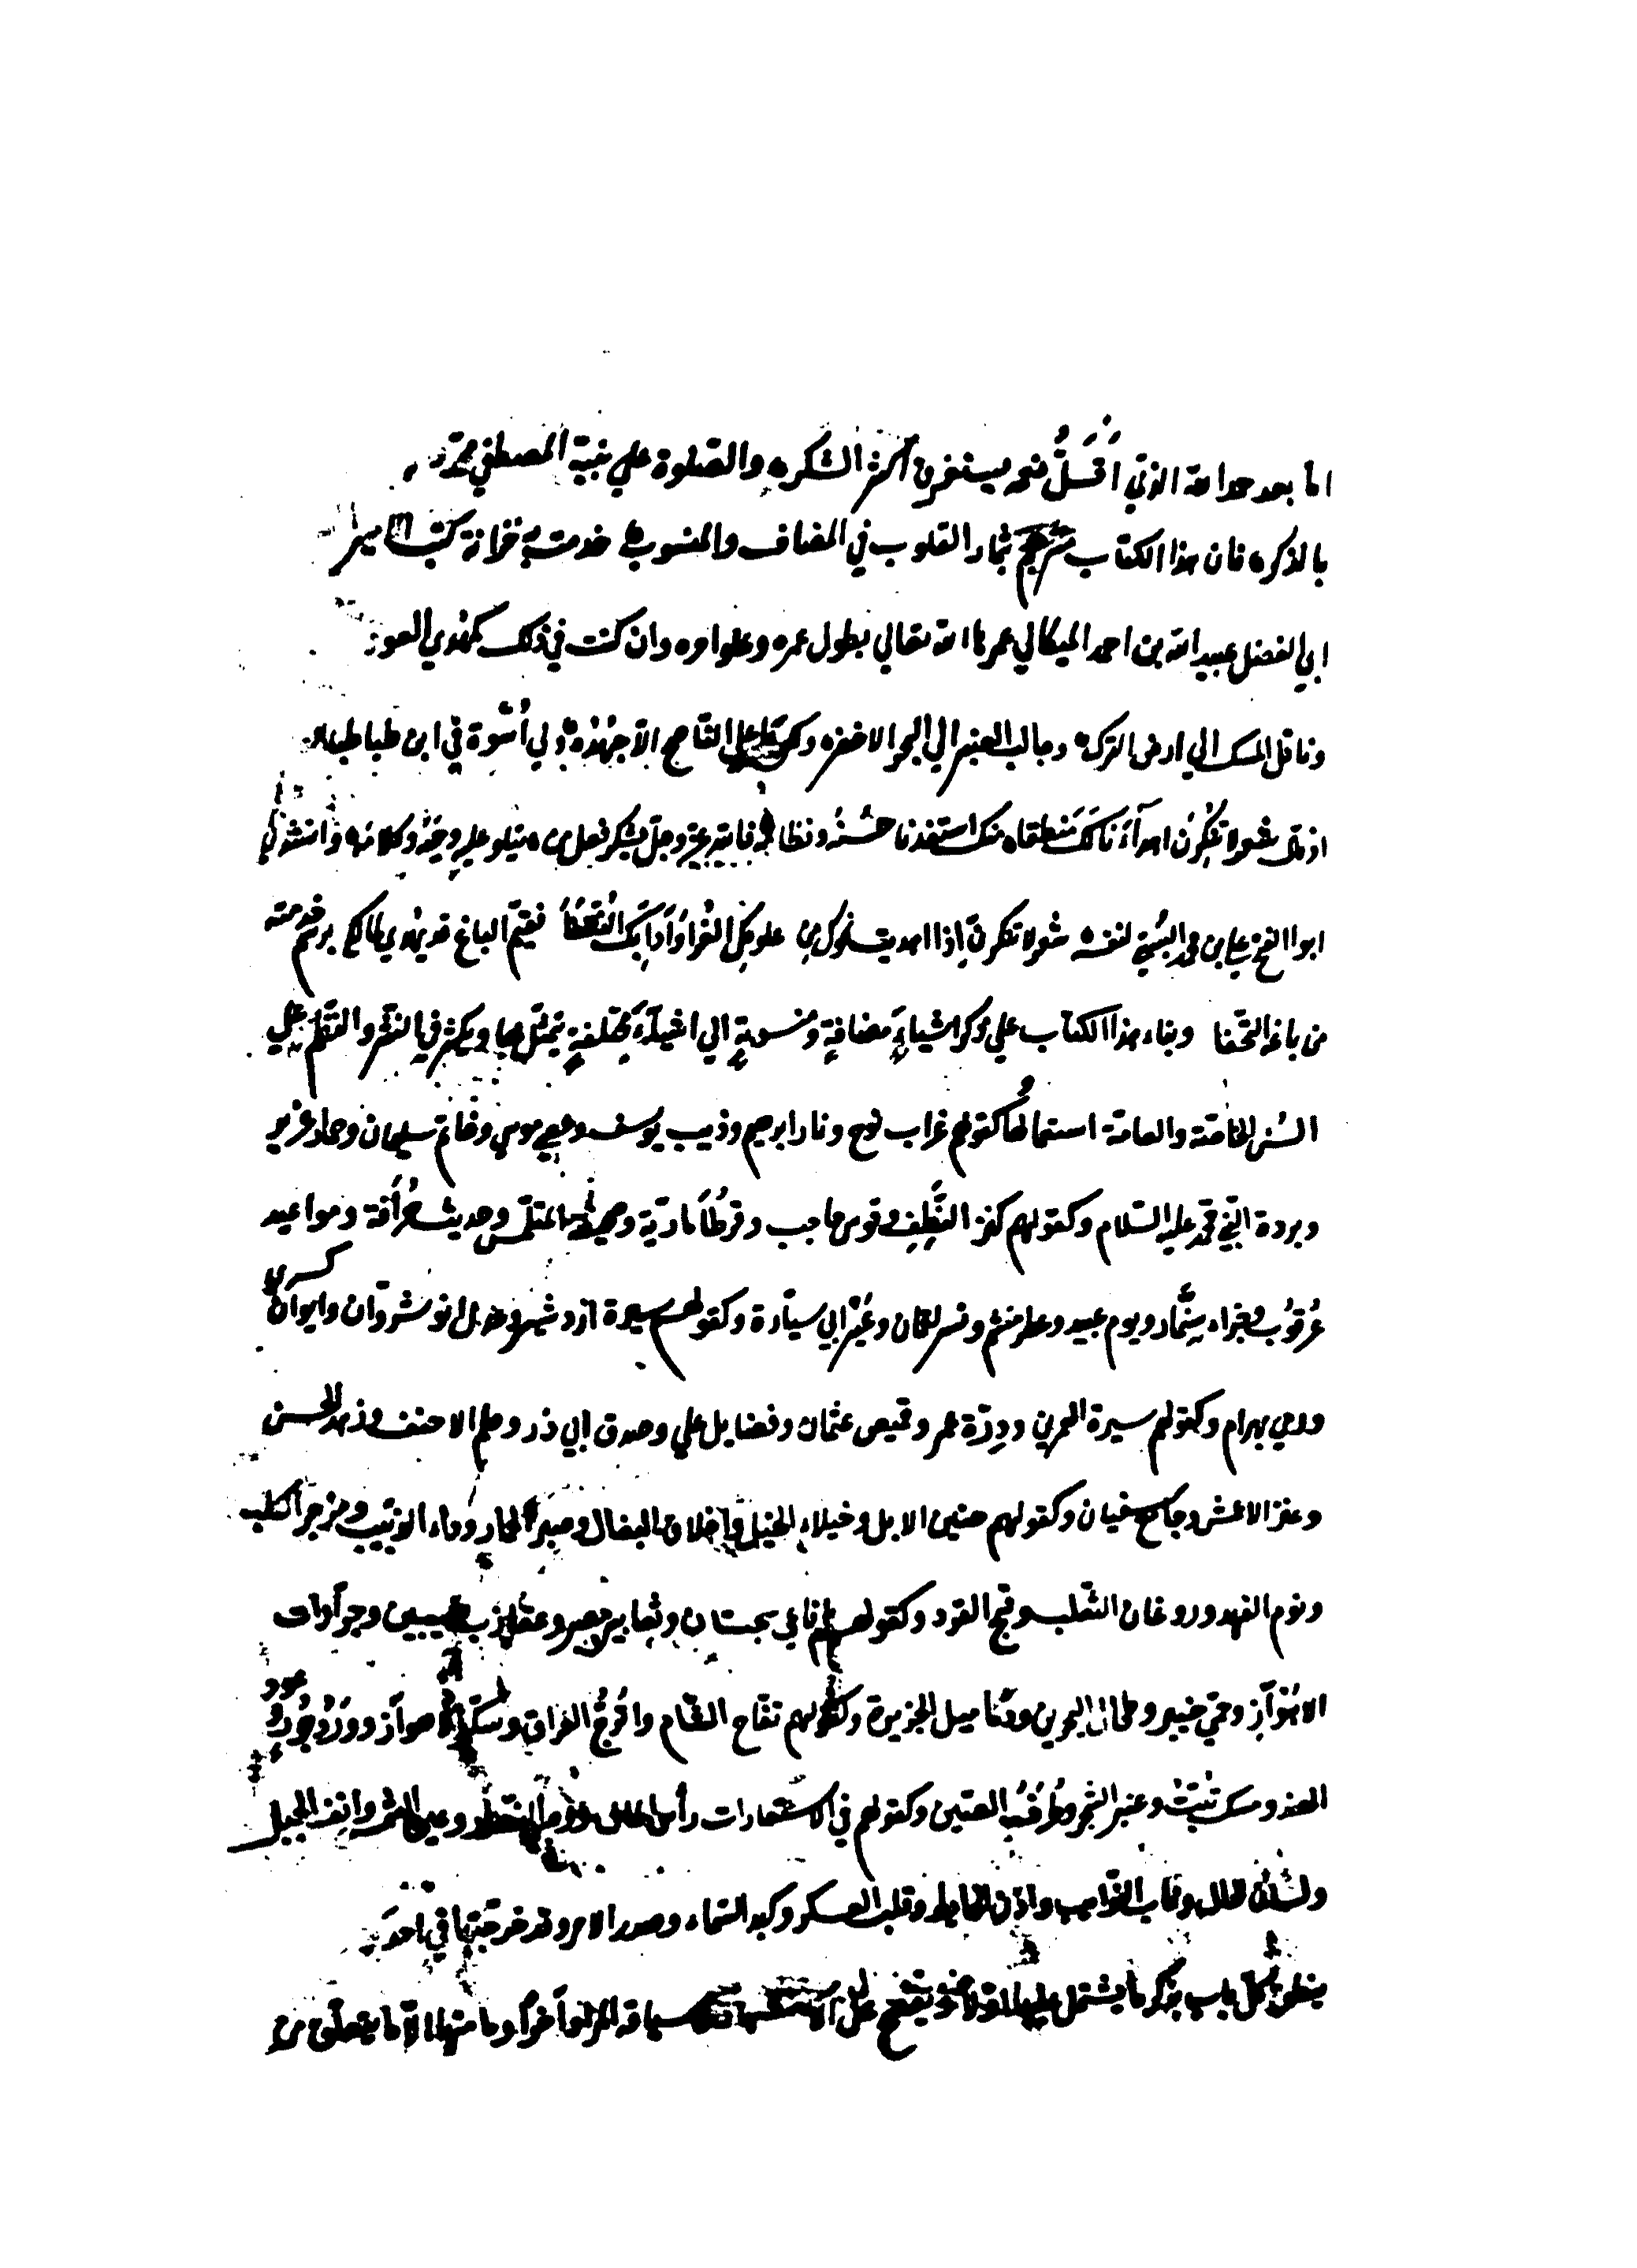 اما بعد حمد الله الذي أَقَلُّ نعمه يستغرق اكثر الشكره والصلوة علي نبيّه المصطفي محمّد
بالذكره فان هذا الكتاب مترجم بثمار القلوب في المضاف والمنسوب خدمت به خزانة كتب الامير
ابي الفضل عبيد الله بن احمد الميكالي عمرها الله تعالي بطول عمره وعلو امره وان كنت في ذلك كمهدي العود
وناقل المسك الي ارض الترك وجالب العنبر الي البحر الاخضره وكن ما علي الناصح الّا جُهْدُه ولي اُسْوَة في ابن طباطبا
اذ قال شعر لا تُنْكِرَن اهدآءَنا لَكَ مَنطقا ه منك استفدنا حُسْنَهُ ونظامه فالله عزّ وجلّ يشكر فعل من ه يتلو عليه وحيَهُ وكلامَه وانشدني
ابو الفتح علي بن محمد البُستي لنفسه شعر لا تنكرنّ اِذا اهديت نحوك من علومك الغُرّ اَو آدابِكَ النُتَفَا فقيّم الباغ قد يُهدي لمالكه برسم خدمته
من باغه التُحَفا وبناء هذا الكتاب علي ذكر اشياءَ مضافةٍ ومنسوبةٍ الي اشيآءَ مختلفةٍ يتمثّل بها ويكثر في النثر والنظم علي
السُن الخاصّة والعامّة استعمالُها كقولهم غراب نوح ونار ابرهيم وذيب يوسف وعصي موسي وخاتم سليمان وحمار عزير
وبردة النبي محمّد عليه السّلام وكقولهم كنز النَّطِفِ وقوس حاجب وقرطَا ماريّة وصحيفة المتلمّس وحديث خُرافة ومواعيد
عُرقُوب وجزاء سِنِمّار ويوم عبيد وعطر منشم ونسر لقمان وعَيْر ابي سيّارة وكقولهم سيرة ازدشير وعدل نوشروان وايوان كسري
ورمي بهرام وكقولهم سيرة العمرين ودِرّة عمر وقميص عثمان وفضايل علي وصدق ابي ذر وحلم الاحنف وزهد الحسن
وعنز الاعمش وجامع سفيان وكقولهم حنين الابل وخيلاء الخيل واخلاق البغال وصبر الحمار وداء الذئب ومزجر الكلب
ونوم الفهد وروغان الثّعلب وقبح القرد وكقولهم افاعي سجستان وثعابين مصر وعقارب نصيبين وجرّارات
الاهْوَازِ وحمّي خيبر وطحال البحرين ودماميل الجزيرة وكقولهم تفّاح الشّام واتْرجُّ العراق وسُكّر الاهواز ووَرْدُ جُورَ وعود
الهند ومسك تبّتْ وعنبر الشحر وطُرَفُ الصّين وكقولهم في الاستعارات رأس المال ووجه النّهار وعين الشمس وانف الجبل
ولسان الحال وناب النوايب واذن الحايط وقلب العسكر وكبد السّماء وصدر الامر وقد خرجتها في احد
ينطق كل باب بذكر ما يشتمل عليه سياقة المرام آخراً وما منها الّا ما يتعلّق من